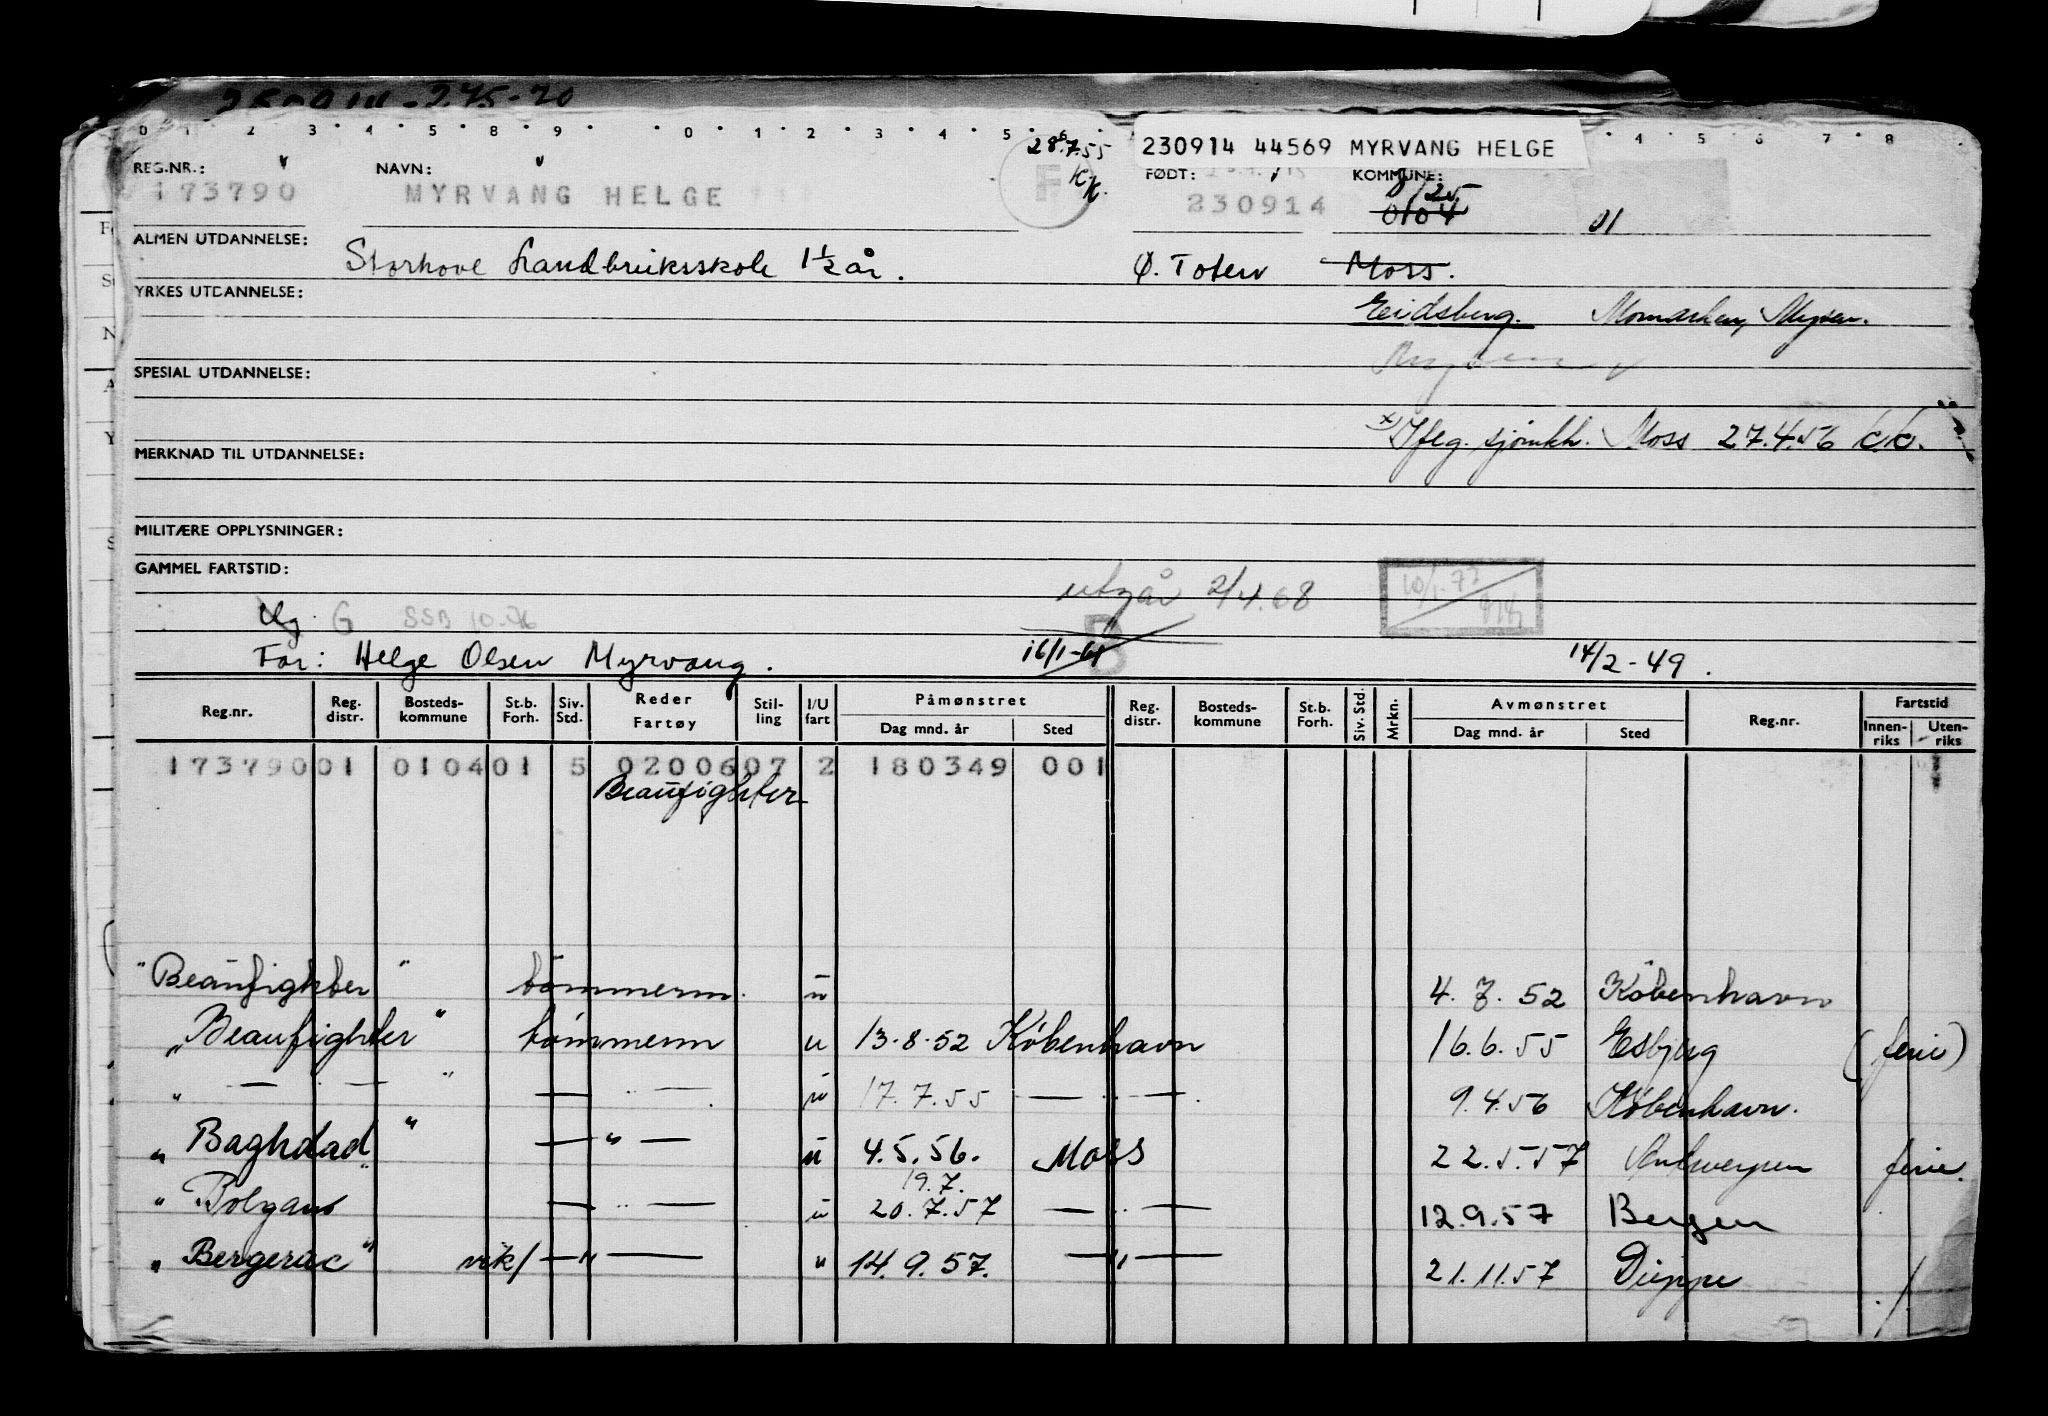 0 · 1 · 2 · 3 · 4 · 5 · 8 · 9 · · 0 · 1 · 2 · 3 · 4 · 5 · 6 · 4 · 5 · 6 · 7 · 8
28.7.55 KK.
230914 44569 MYRVANG HELGE
REG.NR.: NAVN: FØDT: KOMMUNE:
173790 MYRVANG HELGE F 230914 0104 0125 01
ALMEN UTDANNELSE: Storhove Landbruksskole 1½ år. Ø. Toten Moss.
YRKES UTDANNELSE: Eidsberg. Momarken, Mysen.
SPESIAL UTDANNELSE:
x Iflg. sjømkh. Moss 27.4.56 KK.
MERKNAD TIL UTDANNELSE:
MILITÆRE OPPLYSNINGER:
GAMMEL FARTSTID:
utgår 2/4.68 10/1.72
Ug. G SSB 10.96 B
Far: Helge Olsen Myrvang. 16/1-61 14/2-49.
Reg.nr. Reg. distr. Bosteds- kommune St.b. Forh. Siv. Std. Reder Fartøy Stil- ling I/U fart Påmønstret Dag mnd. år Sted Reg. distr. Bosteds- kommune St.b. Forh. Siv. Std. Mrkn. Avmønstret Dag mnd. år Sted Reg.nr. Fartstid Innen- riks Uten- riks
173790 01 0104 01 5 02006 07 2 180349 001
Beaufighter
"Beaufighter" tømmerm. u 4.7.52 København
"Beaufighter" tømmerm u 13.8.52 København 16.6.55 Esbjerg (ferie)
" — " — " — u 17.7.55 — " — 9.4.56 København.
"Baghdad" — " — u 4.5.56. Moss 22.5.57 Antwerpen ferie.
19.7.
"Bolgano" — " — u 20.7.57 — " — 12.9.57 Bergen
"Bergerac" vik/ — " — u 14.9.57. — " — 21.11.57 Dieppe